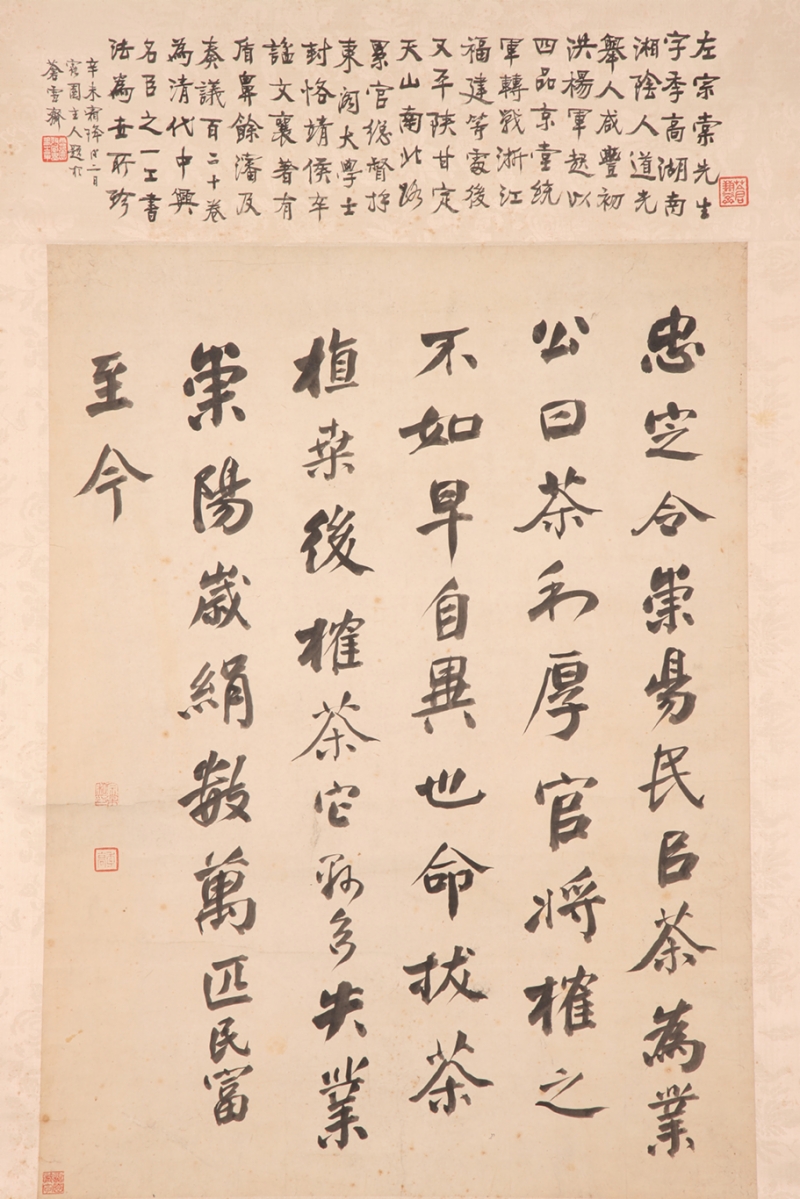 左宗棠先生
字季高湖南
湘陰人道光
舉人咸豐初
洪楊軍起以
四品京堂統
軍轉戰浙江
福建等處後
又平陝甘定
天山南北路
累官總督拜
東閣大學士
封恪靖侯卒
諡文襄著有
盾鼻餘瀋及
奏議百二十卷
為清代中興
名臣之一工書
法為世所珍
辛未霜降後二日
園主人題於
蒼雪齋
忠定令崇昜民㠯茶為業
公曰茶利厚官將榷之
不如早自異也命拔茶
植桒後榷茶它縣多失業
崇陽歲絹數萬匹民富
至今